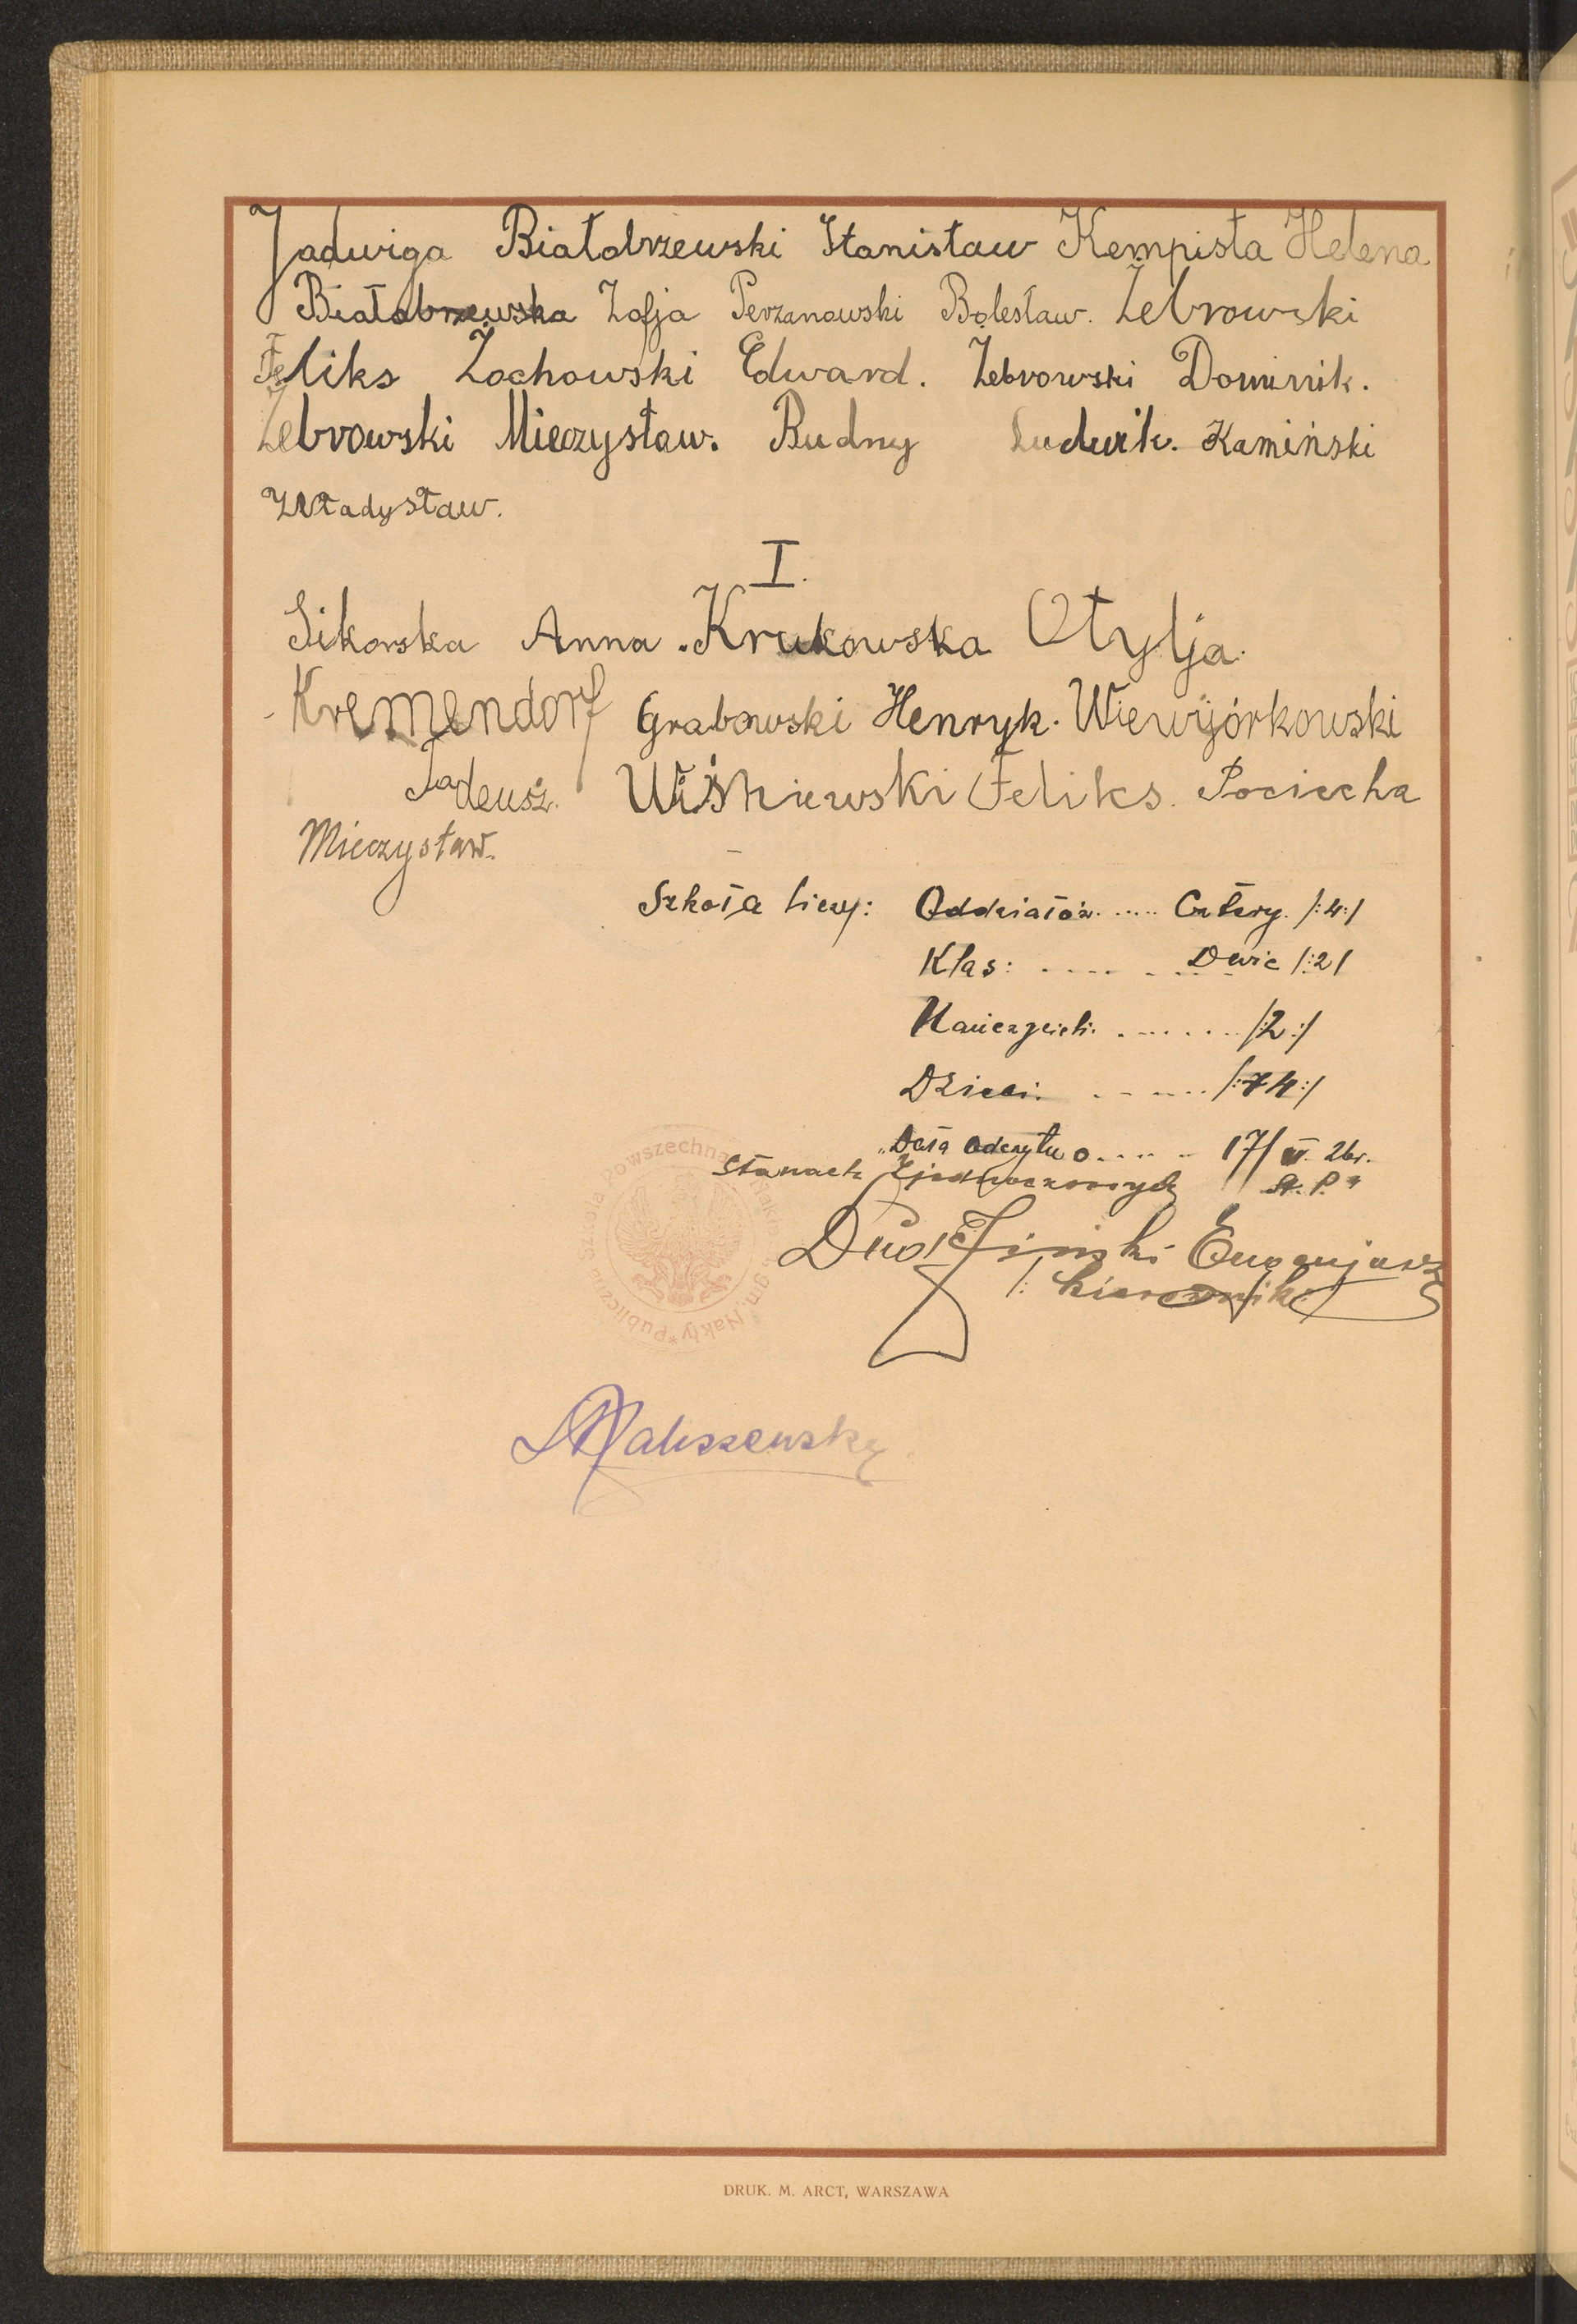 Jadwiga Białobrzewski Stanisław Kempista Helena
Białobrzewska Zofja Perzanowski Bolesław. Żebrowski
Feliks Żochowski Edward. Żebrowski Dominik.
Żebrowski Mieczysław. Rudny Ludwik. Kamiński
Władysław.
I.
Sikorska Anna. Krukowska Otylja.
Kremendorf Grabowski Henryk. Wiewjórkowski
Tadeusz. Wiśniewski Feliks. Pociecha
Mieczysław.
Szkoła liczy: Oddziałów ..... Cztery /:4:/
Klas: ..... Dwie /:2/
Nauczycieli ....... /:2:/
Dzieci: ....... /:74:/
„Data odczytu o..... 17/VI. 26r.
Stanach Zjednoczonych A. P."
Eugenjusz
/: kierownik :/
Publiczna Szkoła Powszechna gm. Nakły *
Maliszewska
DRUK. M. ARCT, WARSZAWA